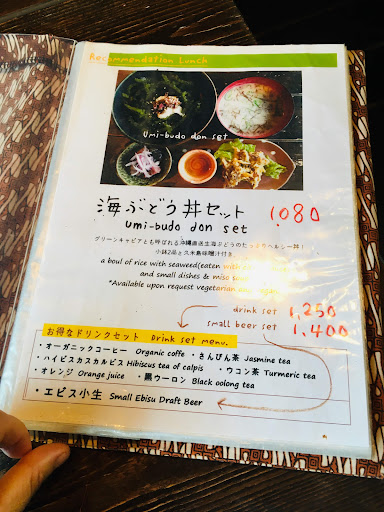 Recommendation Lunch
Umi-budo don set
海ぶどう丼セット 1,080
umi-budo don set
グリーンキャビアとも呼ばれる沖縄直送生海ぶどうのたっぷりヘルシー丼!
小鉢2品と久米島味噌汁付き。
a bowl of rice with seaweed(eaten with
and small dishes & miso
*Available upon request vegetarian
drink set 1,250
small beer set 1,400
お得なドリンクセット Drink set menu.
・オーガニックコーヒー Organic coffe ・さんぴん茶 Jasmine tea
・ハイビスカスカルピス Hibiscus tea of calpis ・ウコン茶 Turmeric tea
・オレンジ Orange juice ・黒ウーロン Black oolong tea
・エビス小生 Small Ebisu Draft Beer